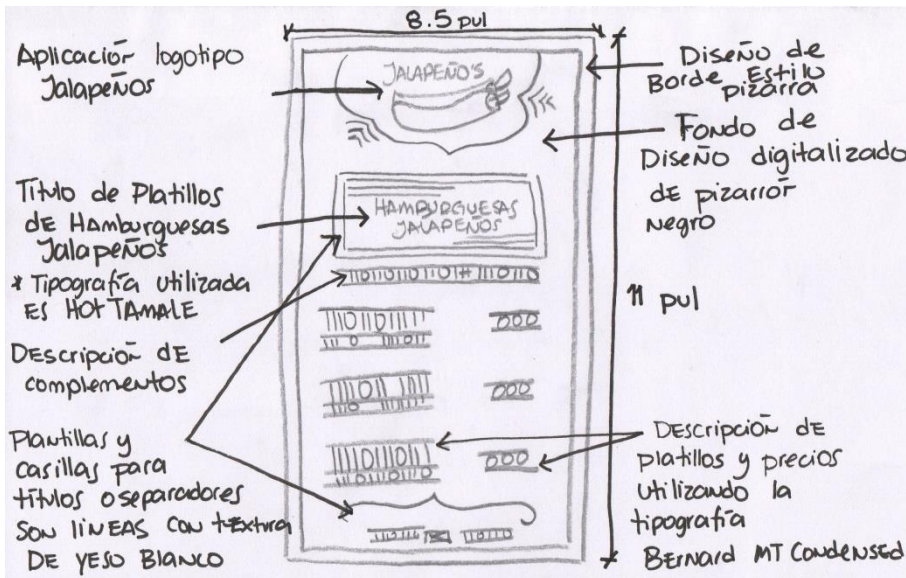 8.5 pul
Aplicación logotipo
Jalapeños
JALAPEÑO'S
Diseño de
Borde Estilo
pizarra
Fondo de
Diseño digitalizado
DE pizarrón
Negro
Título de Platillos
de Hamburguesas
Jalapeños
* Tipografía utilizada
ES HOT TAMALE
HAMBURGUESAS
JALAPEÑOS
11 pul
Descripción DE
complementos
Plantillas y
casillas para
títulos o separadores
SON LINEAS CON tExtura
DE YESO BLANCO
DESCRIPCIÓN DE
platillos y precios
utilizando la
tipografía
BERNARD MT CONDENSED